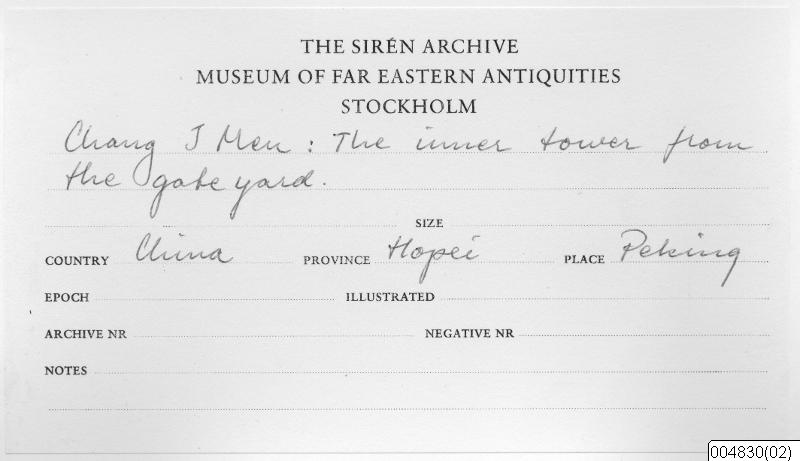 THE SIRÉN ARCHIVE
MUSEUM OF FAR EASTERN ANTIQUITIES
STOCKHOLM
Chang I Men : The inner tower from
the gate yard.
SIZE
COUNTRY China PROVINCE Hopei PLACE Peking
EPOCH ILLUSTRATED
ARCHIVE NR NEGATIVE NR
NOTES
004830(02)